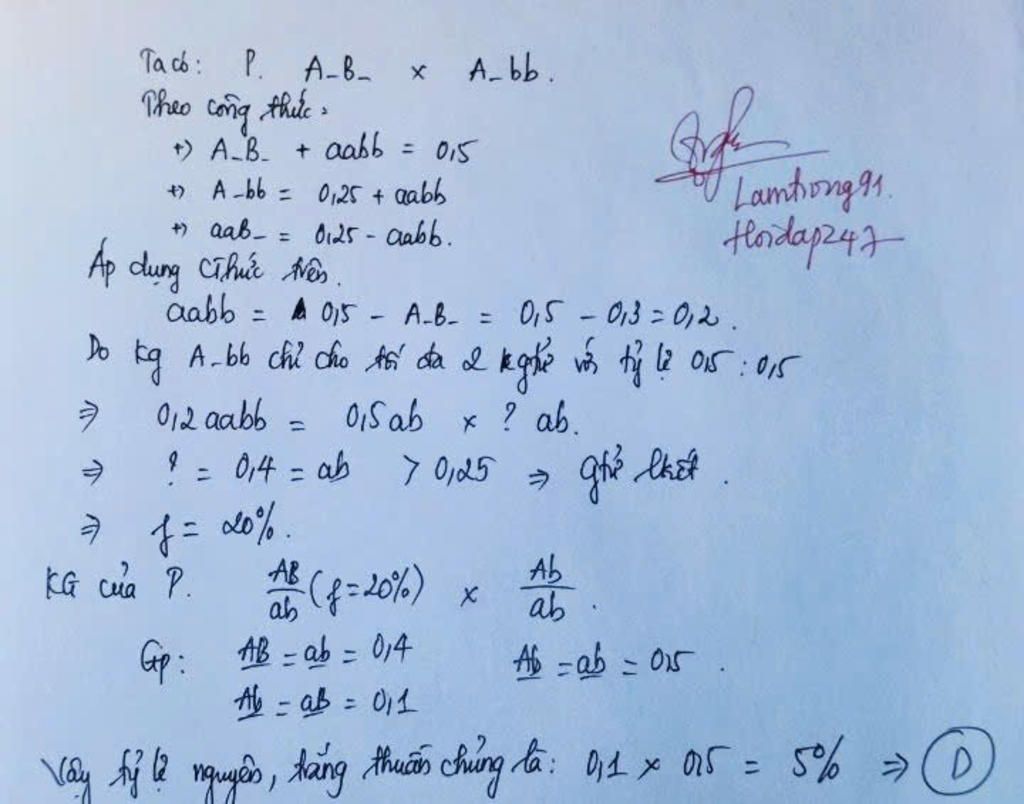 Ta có: P. A_B_ x A_bb.
Theo công thức:
+) A_B_ + aabb = 0,5
+) A_bb = 0,25 + aabb
+) aaB_ = 0,25 - aabb.
Lamtrong91.
Hoidap247
Áp dụng cthức trên.
aabb = 0,5 - A_B_ = 0,5 - 0,3 = 0,2.
Do kg A_bb chỉ cho tối đa 2 gtử với tỷ lệ 0,5 : 0,5
⇒ 0,2 aabb = 0,5 ab x ? ab.
⇒ ? = 0,4 = ab > 0,25 ⇒ gtử lkết.
⇒ f = 20%.
KG của P. AB/ab (f = 20%) x Ab/ab.
Gp: AB = ab = 0,4 Ab = ab = 0,5.
Ab = aB = 0,1
Vậy tỷ lệ nguyên, trắng thuần chủng là: 0,1 x 0,5 = 5% ⇒ D